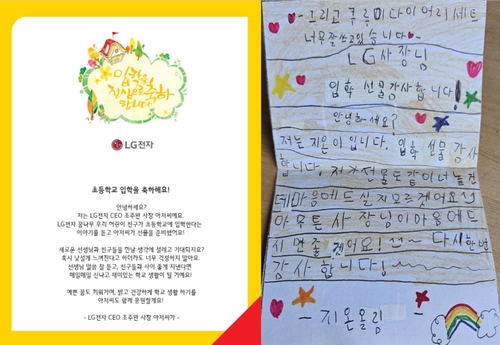 입학을
진심으로 축하
합니다
LG전자
초등학교 입학을 축하해요!
안녕하세요?
저는 LG전자 CEO 조주완 사장 아저씨예요.
LG전자 꿈나무 우리 어린이 친구가 초등학교에 입학한다는
이야기를 듣고 아저씨가 선물을 준비했어요!
새로운 선생님과 친구들을 만날 생각에 설레고 기대되지요?
혹시 낯설게 느껴진다고 하더라도 너무 걱정하지 말아요.
선생님 말씀 잘 듣고, 친구들과 사이 좋게 지낸다면
매일매일 신나고 재미있는 학교 생활이 될 거예요!
예쁜 꿈도 키워가며, 밝고 건강하게 학교 생활 하기를
아저씨도 함께 응원할게요!
- LG전자 CEO 조주완 사장 아저씨가 -
- 그리고 쿠로미다이어리세트
너무잘쓰고있습니다
LG사장님
입학 선물감사합니다!
안녕하세요?
저는 지온이 입니다. 입학 선물 감사
합니다. 저가선물도같이너놓건
데마음에드실지모르겠어요!
아무튼 사장님이마음에드
시면좋겠어요! 다시한번
감사합니다!
- 지온올림 -